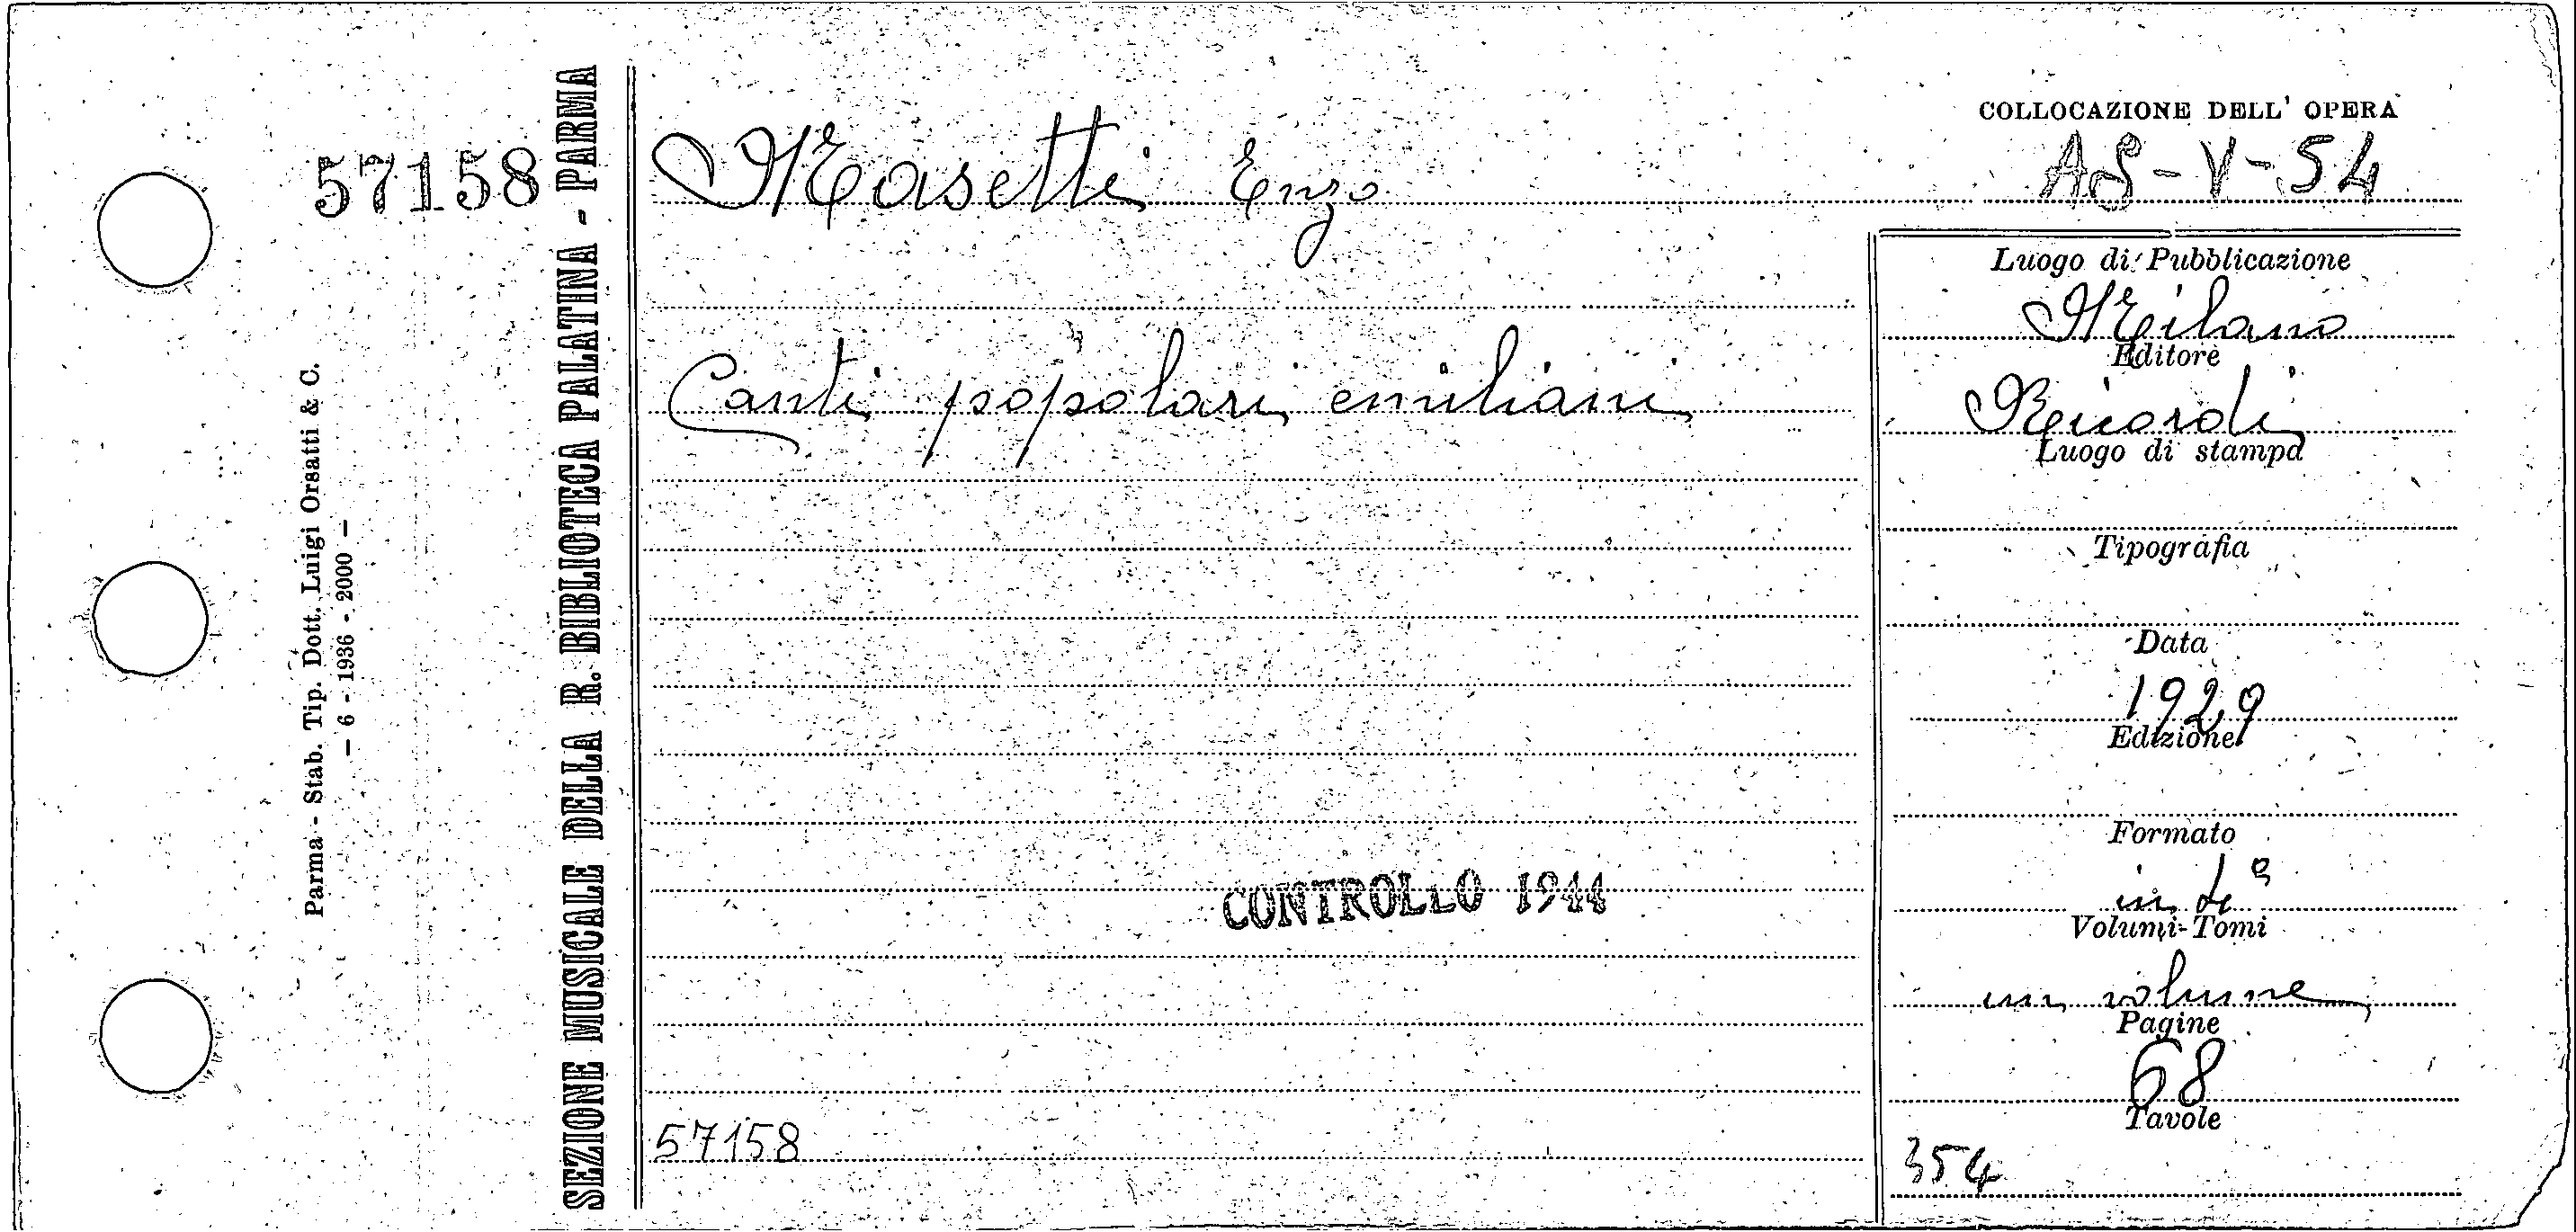 57158
Parma - Stab. Tip. Dott. Luigi Orsatti & C.
— 6 - 1936 - 2000 —
SEZIONE MUSICALE DELLA R. BIBLIOTECA PALATINA - PARMA
Masetti Enzo
Canti popolari emiliani
CONTROLLO 1944
57158
COLLOCAZIONE DELL' OPERA
AS-V-54
Luogo di Pubblicazione
Milano
Editore
Ricordi
Luogo di stampa
Tipografia
Data
1929
Edizione
Formato
in 4°
Volumi-Tomi
un volume
Pagine
68
Tavole
354